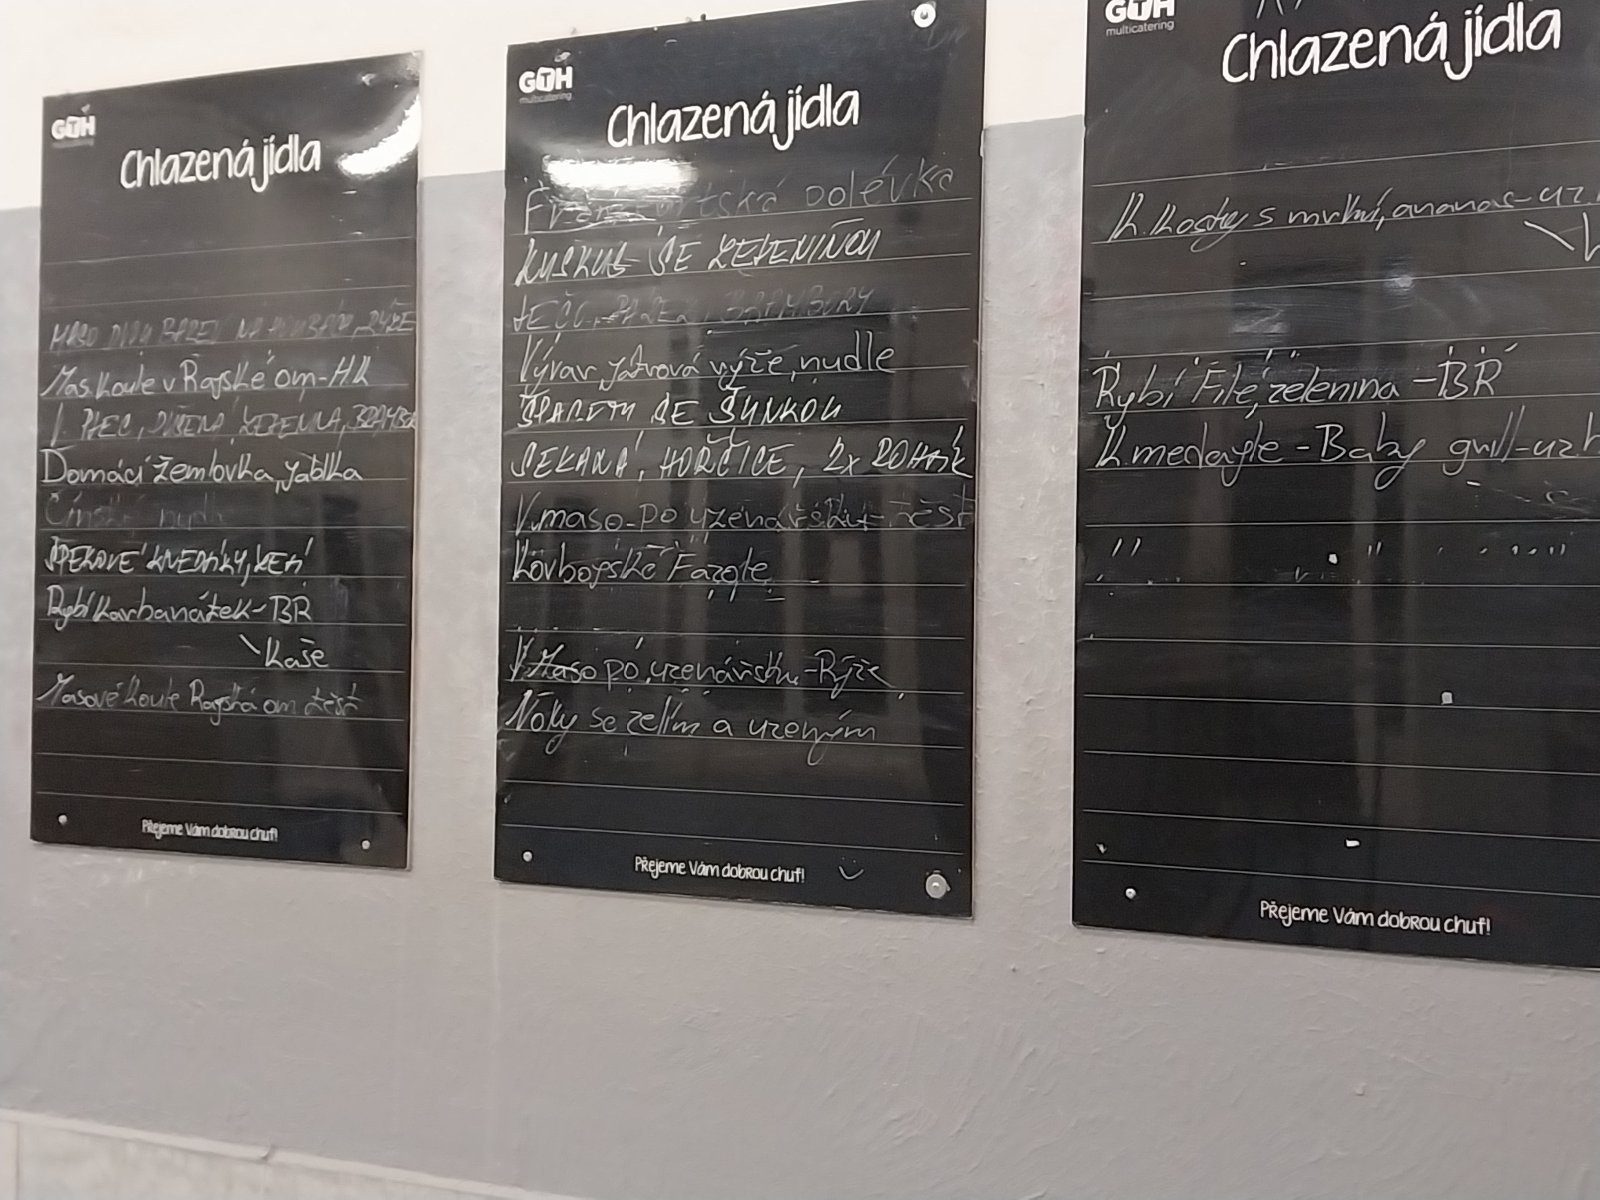 GTH
multicatering
Chlazená jídla
Mas. koule v Rajské om - HK
Domácí žemlovka, jablka
ŠPEKOVÉ KNEDLÍKY, ZELÍ
Rybí karbanátek - BR
Kaše
Masové koule Rajská om. těst
Přejeme Vám dobrou chuť!
GTH
multicatering
Chlazená jídla
Frankfurtská polévka
KUSKUS SE ZELENINOU
BRAMBORY
Vývar, játrová rýže, nudle
ŠPAGETY SE ŠUNKOU
SEKANÁ, HOŘČICE, 2x ROHLÍK
V. maso po uzenářsku - těst
Kovbojské Fazole
V. Maso po uzenářsku - Rýže
Noky se zelím a uzeným
Přejeme Vám dobrou chuť!
GTH
multicatering
Chlazená jídla
K. kostky s mrkví, ananas - vz.
Rybí Filé, zelenina - BR
K. medajle - Baby grill - vz.
Přejeme Vám dobrou chuť!